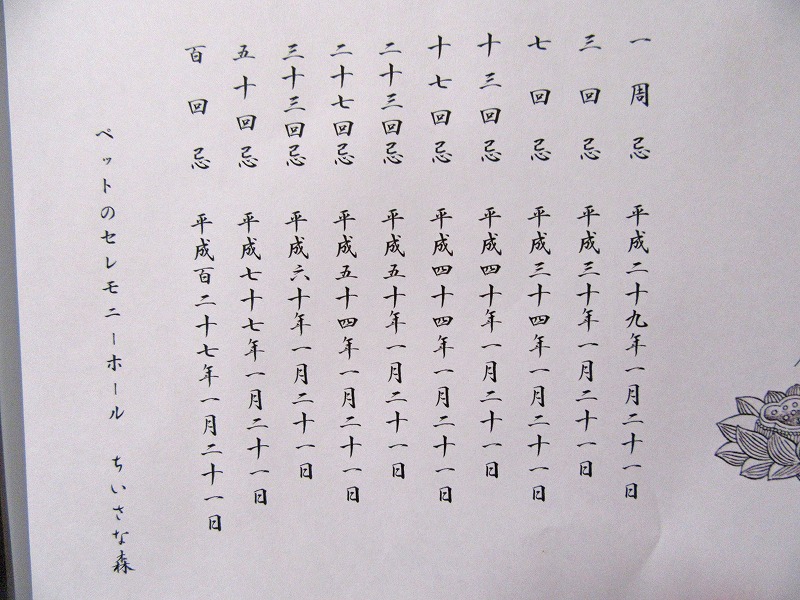 一周忌 平成二十九年一月二十一日
三回忌 平成三十年一月二十一日
七回忌 平成三十四年一月二十一日
十三回忌 平成四十年一月二十一日
十七回忌 平成四十四年一月二十一日
二十三回忌 平成五十年一月二十一日
二十七回忌 平成五十四年一月二十一日
三十三回忌 平成六十年一月二十一日
五十回忌 平成七十七年一月二十一日
百回忌 平成百二十七年一月二十一日
ペットのセレモニーホール ちいさな森